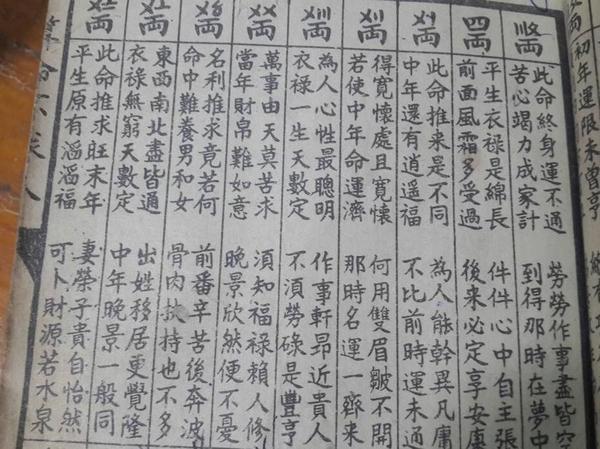 初年運限未曾亨
此命終身運不通 勞勞作事盡皆空
苦心竭力成家計 到得那時在夢中
四両
平生衣祿是綿長 件件心中自主張
前面風霜多受過 後来必定享安康
〤〡両
此命推来是不同 為人能幹異凡庸
中年還有逍遥福 不比前時運未通
〤〢両
得寬懷處且寬懷 何用雙眉皺不開
若使中年命運濟 那時名運一齊来
〤〣両
為人心性最聰明 作事軒昂近貴人
衣祿一生天數定 不須勞碌是豐亨
〤〤両
萬事由天莫苦求 須知福祿賴人修
當年財帛難如意 晚景欣然便不憂
名利推求竟若何 前番辛苦後奔波
命中難養男和女 骨肉扶持也不多
東西南北盡皆通 出姓移居更覺隆
衣祿無窮天數定 中年晚景一般同
此命推求旺末年 妻榮子貴自怡然
平生原有滔滔福 可卜財源若水泉